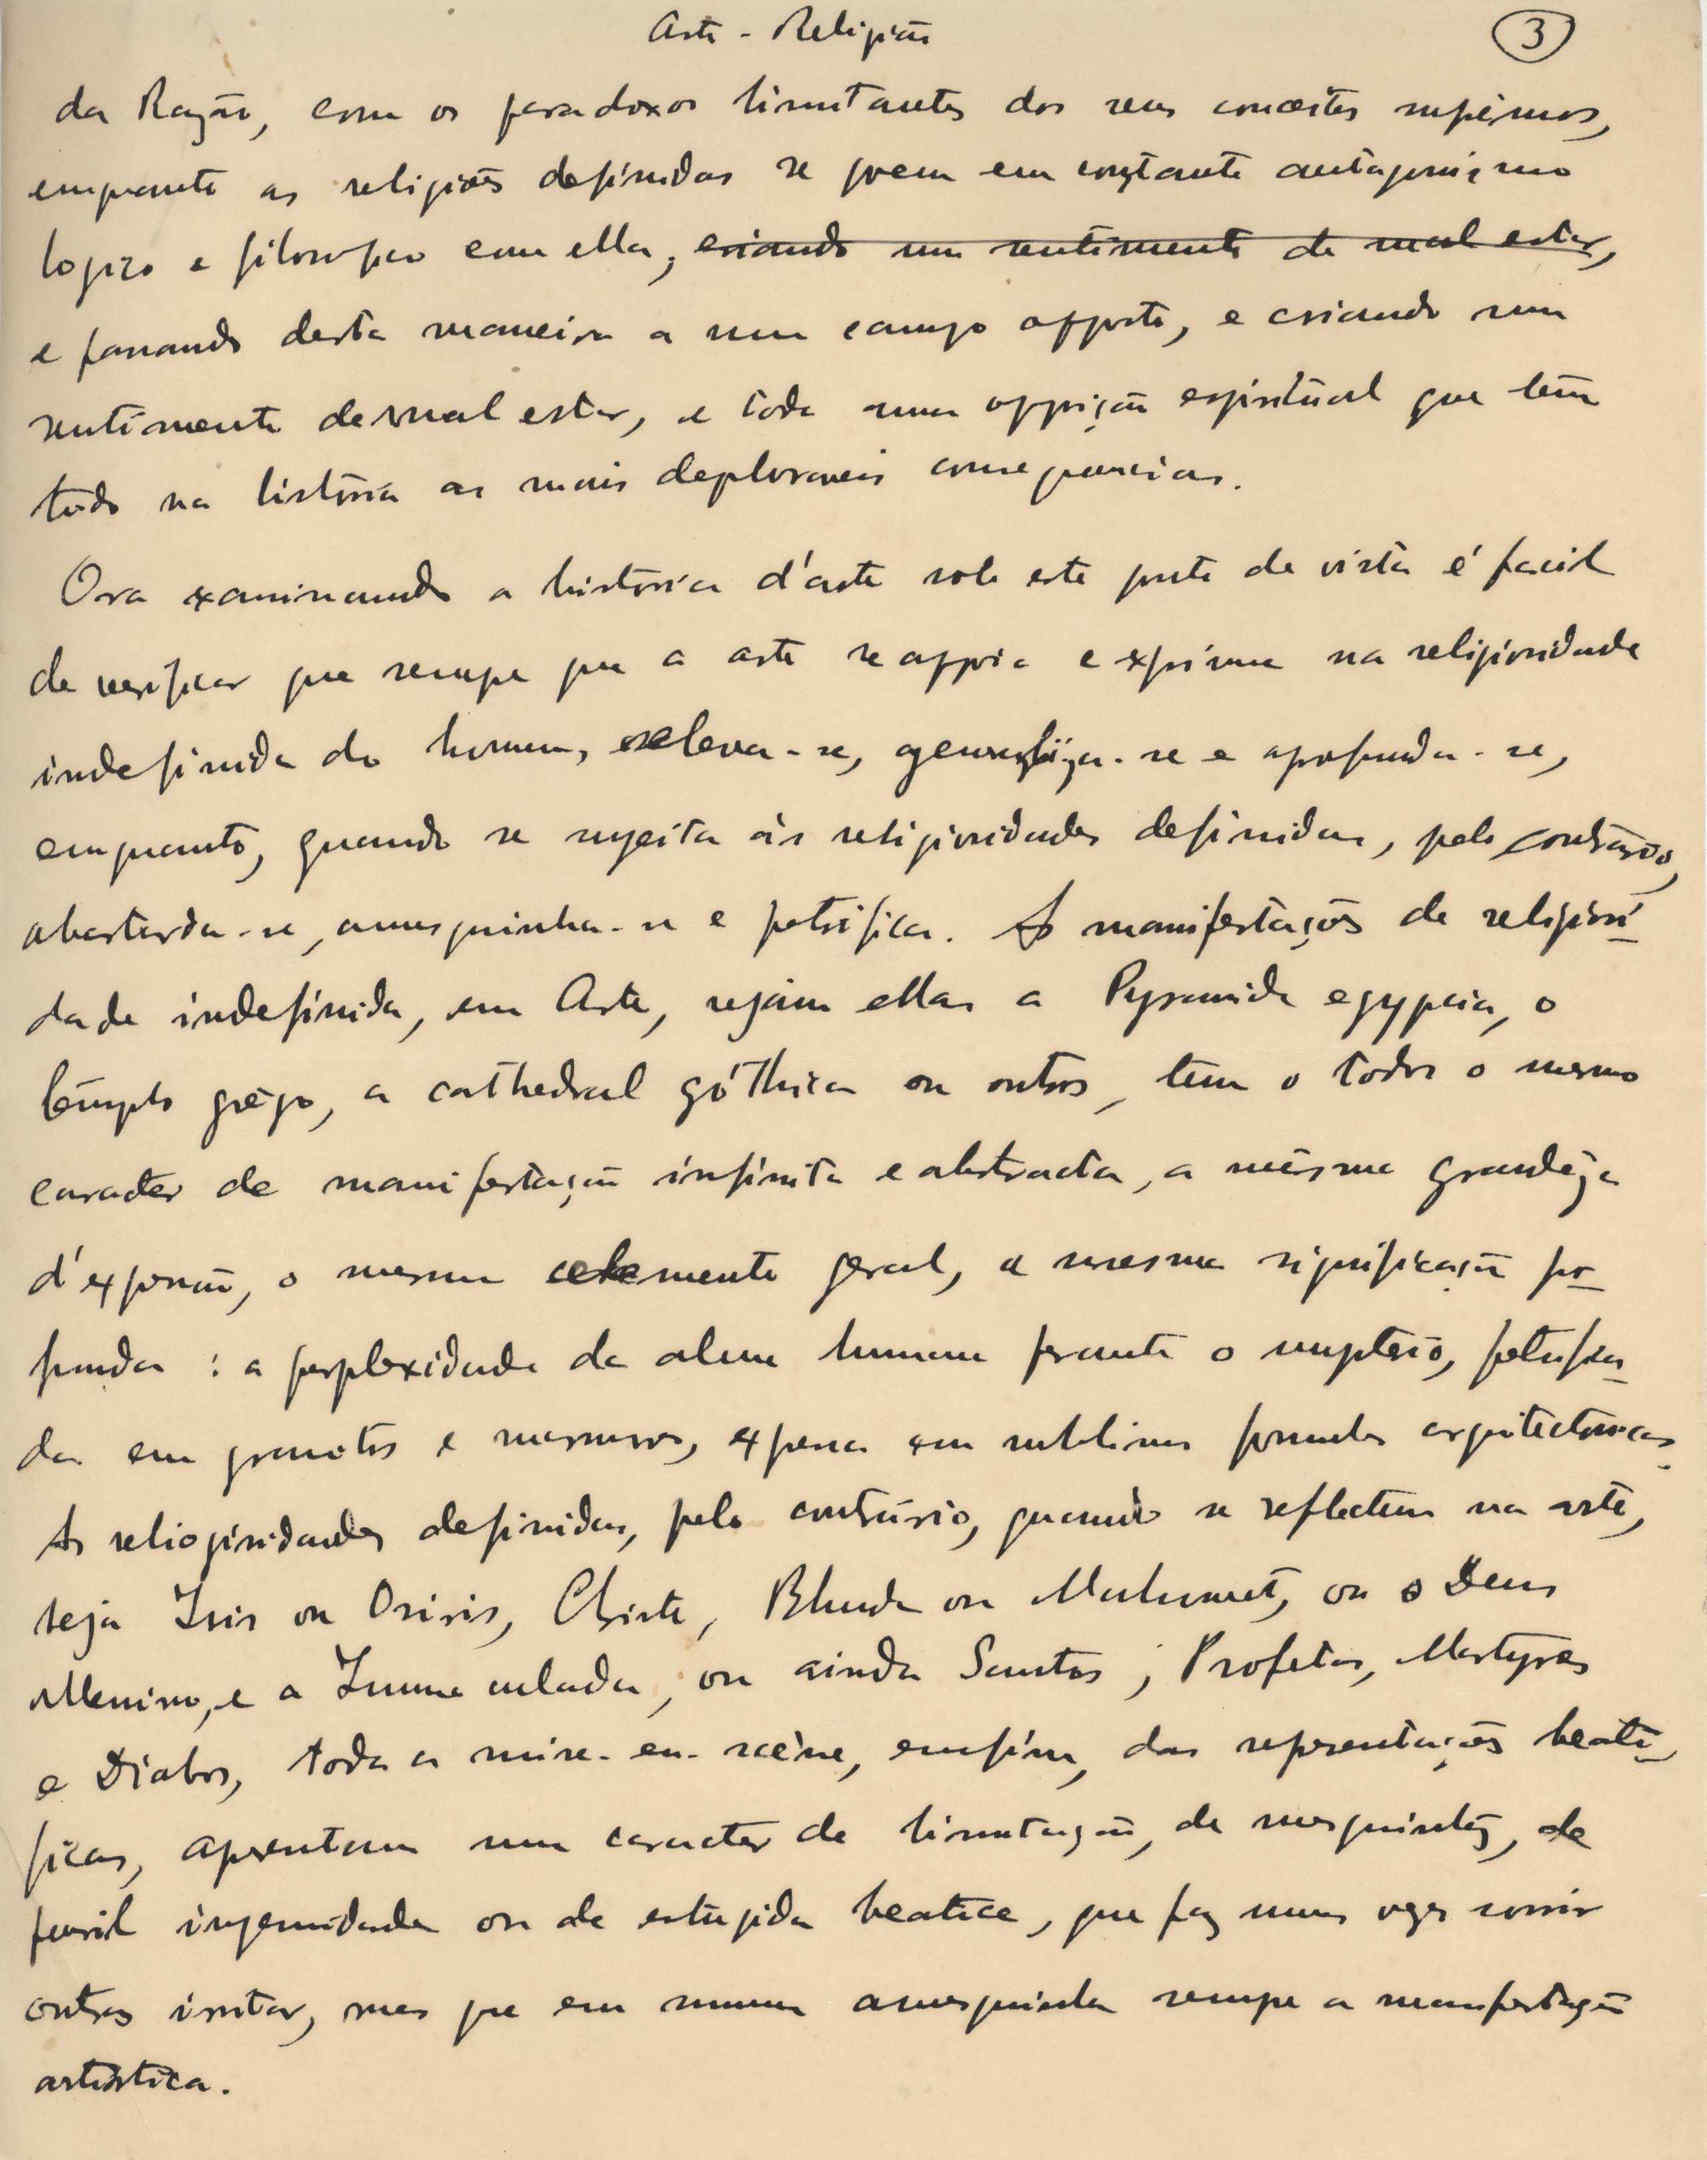 Arte - Religião
3
da Razão, com os paradoxos limitantes dos seus conceitos supremos,
emquanto as religiões definidas se poem em constante antagonismo
logico e filosofico com ella, criando um sentimento de mal estar,
e passando desta maneira a um campo opposto, e criando um
sentimento de mal estar, e toda uma opposição espiritual que tem
tido na história as mais deploraveis consequencias.
Ora examinando a história d'arte sob este ponto de vista é facil
de verificar que sempre que a arte se appoia e exprime na religiosidade
indefinida do homem, eleva-se, generaliza-se e aprofunda-se,
emquanto, quando se sujeita às religiosidades definidas, pelo contrário,
abastarda-se, amesquinha-se e petrifica. As manifestações de religiosi-
dade indefinida, em Arte, sejam ellas a Pyramide egypcia, o
templo grego, a cathedral góthica ou outros, tem o todos o mesmo
caracter de manifestação infinita e abstracta, a mesma grandeza
d'expressão, o mesmo elemento geral, a mesma significação pro-
funda : a perplexidade da alma humana perante o mysterio, petrifica-
da em granitos e marmores, expressa em sublimes formulas arquitectonicas.
As religiosidades definidas, pelo contrário, quando se reflectem na arte,
seja Isis ou Osiris, Christo, Bhuda ou Mahomet, ou o Deus
Menino, e a Immaculada, ou ainda Santos, Profetas, Martyres
e Diabos, toda a mise-en-scène, emfim, das representações beati-
ficas, apresentam um caracter de limitação, de mesquinhez, de
pueril ingenuidade ou de estupida beatice, que faz umas vezes sorrir
outras irritar, mas que em summa amesquinha sempre a manifestação
artistica.